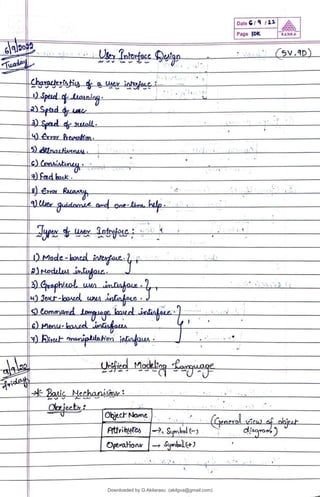 Date 6/9/22
Page SDR
6/9/2022
Tuesday
User Interface Design
(5V, 9D)
Characteristics of a user interface:
1) Speed of learning.
2) Speed of use.
3) Speed of recall.
4) Error Prevention.
5) Attractiveness.
6) Consistency.
7) Feed back.
8) Error Recovery.
9) User guidance and one-line help.
Types of User Interface:
1) Mode-based interface.
2) Modeless interface.
3) Graphical user interface.
4) Text-based user interface.
5) Command language based interface.
6) Menu-based interfaces
7) Direct manipulation interfaces.
Friday
Unified Modeling Language
Basic Mechanisms:
Objects:
Object Name
Attributes → Symbol (-)
Operations → Symbol (+)
(General view of object diagram)
Downloaded by G.Akilarasu (akilgvs@gmail.com)